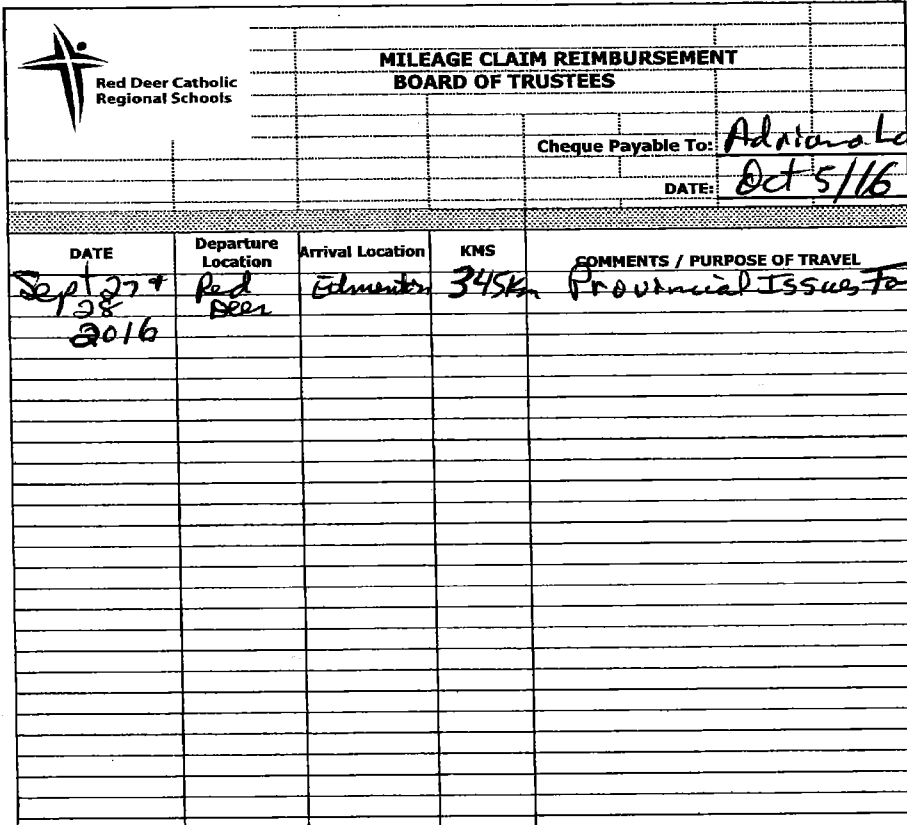 Red Deer Catholic
Regional Schools
MILEAGE CLAIM REIMBURSEMENT
BOARD OF TRUSTEES
Cheque Payable To: Adriana La
DATE: Oct 5/16
DATE Departure Location Arrival Location KMS COMMENTS / PURPOSE OF TRAVEL
Sept 27 + Red Edmonton 345Km Provincial Issues Fo
28 Deer
2016